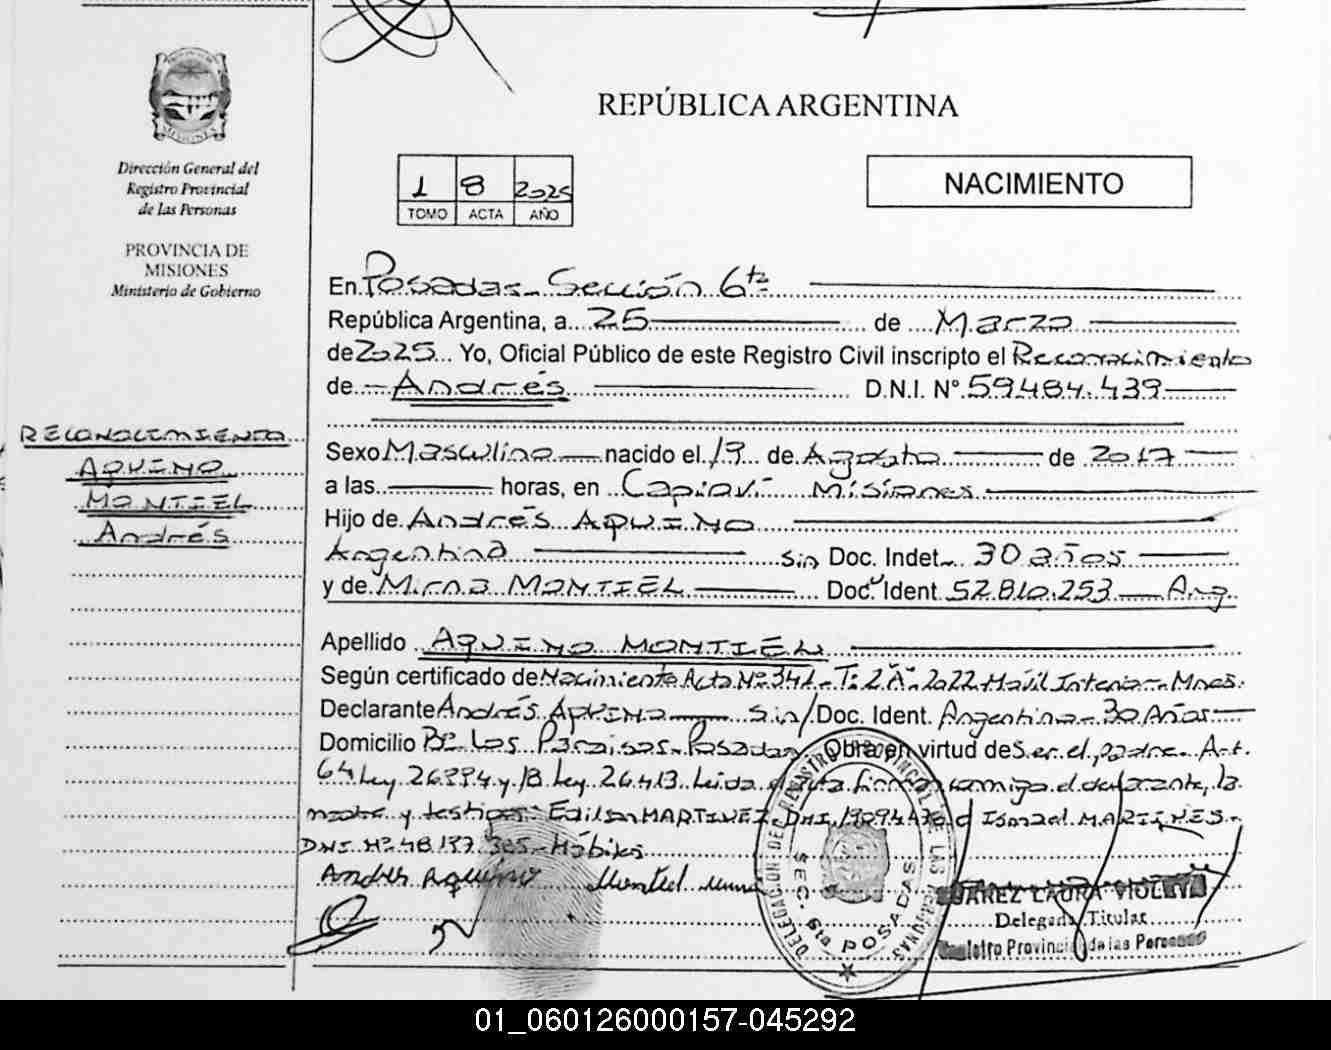 REPÚBLICA ARGENTINA
MISIONES
Dirección General del
Registro Provincial
de las Personas
PROVINCIA DE
MISIONES
Ministerio de Gobierno
1 8 2025
TOMO ACTA AÑO
NACIMIENTO
RECONOCIMIENTO
AQUINO
MONTIEL
Andrés
En Posadas - Sección 6ta
República Argentina, a 25 de Marzo
de 2025 Yo, Oficial Público de este Registro Civil inscripto el Reconocimiento
de Andrés D.N.I. Nº 59.484.439
Sexo Masculino nacido el 19 de Agosto de 2017
a las horas, en Capioví Misiones
Hijo de Andrés AQUINO
Argentino Sin Doc. Indet. 30 años
y de Mirna MONTIEL Doc. Ident. 52.810.253 Arg.
Apellido AQUINO MONTIEL
Según certificado de Nacimiento Acta Nº 341 - T: 2 Aº 2022 Móvil Interior - Mnes.
Declarante Andrés AQUINO Sin/ Doc. Ident. Argentino - 30 Años
Domicilio Bº Los Paraisos - Posadas Obra en virtud de Ser el padre Art.
64 Ley 26994 y 18 Ley 26.413. Leida el acta firman conmigo el declarante, la
madre y testigos: Edilson MARTINEZ DNI Ismael MARTINES -
DNI Nº 48.197.385 - Hábiles
Andres Aquino Montiel mirna
DELEGACION DEL REGISTRO PROVINCIAL DE LAS PERSONAS
SEC. 6ta POSADAS
SUAREZ LAURA VIOLETA
Delegada Titular
Registro Provincial de las Personas
01_060126000157-045292